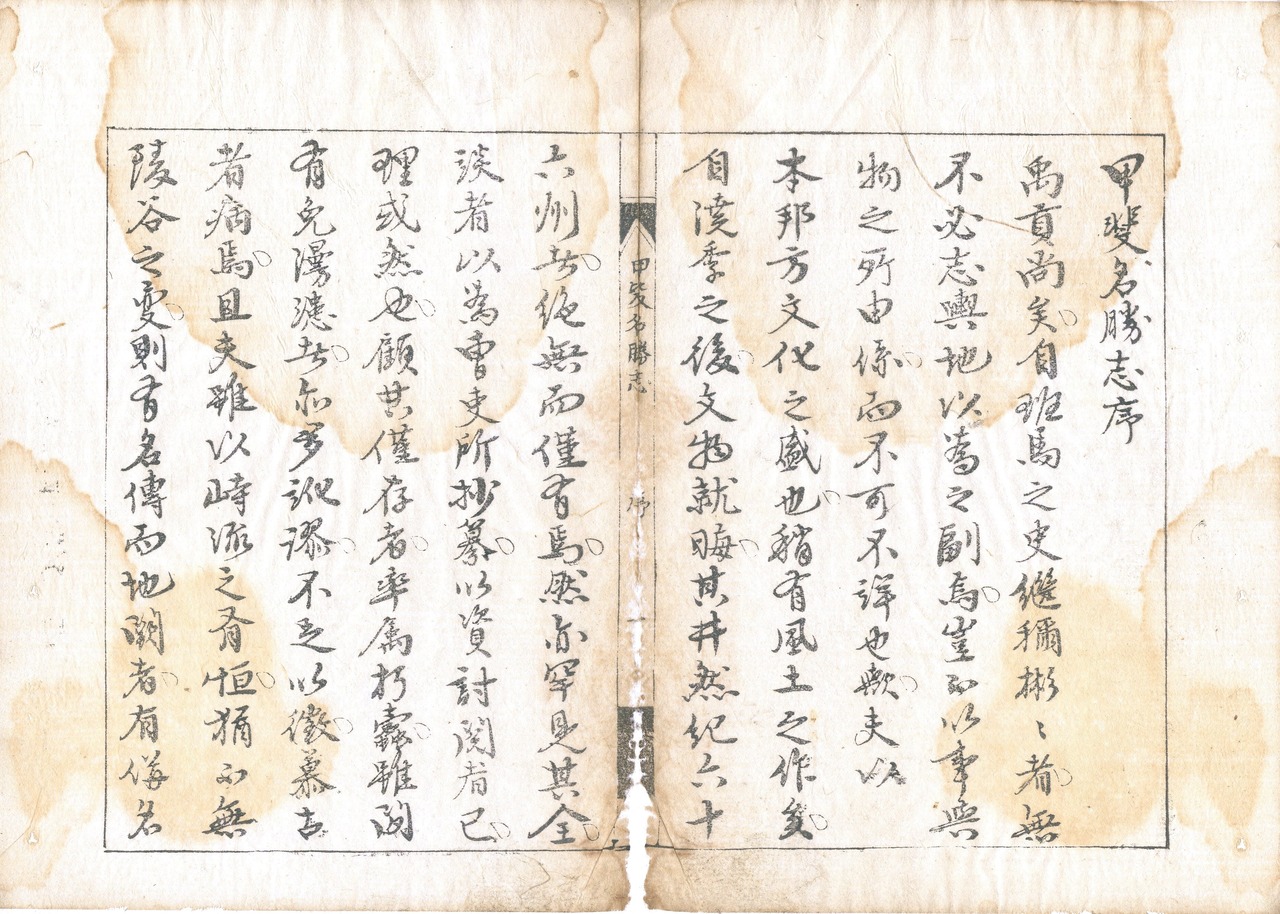 甲斐名勝志序
禹貢尚矣自班馬之史繼稱彬〻者無
不必志輿地以為之副焉豈不以事與
物之所由係而不可不詳也歟夫以
本邦方文化之盛也稍有風土之作矣
自澆季之後文物就晦其井然紀六十
甲斐名勝志 序 一
六州者絶無而僅有焉然亦罕見其全
談者以為曹吏所抄纂以資討閲者已
理或然也顧其僅存者率属朽蠹雖間
有免漫漶者亦多訛謬不足以徴慕古
者病焉且夫雖以峙流之者恒猶不無
陵谷之変則有名傳而地闕者有偽名